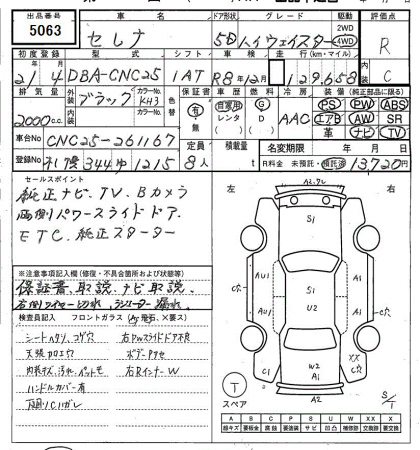 出品番号 車名 ドア形状 グレード 駆動 評価点
5063 セレナ 5D ハイウェイスター 2WD 4WD R
初度登録 型式 シフト 車検 走行(km・マイル) 内装
21 4 DBA-CNC25 IAT R8年12月 129,658 C
排気量 外装 ブラック カラーNo. KH3 色替 車歴 燃料 冷房 装備(純正部品に限る)
2000cc 内装 カラーNo. 有・無 自家用 レンタ G D AAC PS PW ABS
エアB AW SR
革 ナビ TV
車台No CNC25-261167 定員 積載量 名変期限 年 月 日
登録No 札幌344ゆ1215 8人 t R料金 未預託・預託済 13720円
セールスポイント
純正ナビ.TV.Bカメラ
両側パワースライドドア.
ETC.純正スターター
※注意事項記入欄(修復・不具合箇所および状態等)
保証書.取説.ナビ取説.
右側ワイヤー切れ.ラジエーター漏れ.
検査員記入 フロントガラス(A・飛石・X要ス)
シートヘタリ、コゲ穴 右PWスライドドア不良
天張カロエ穴 ボデーアセ
内装キズ、汚れ、ペットモ 右RインナーW
ハンドルカバー有
下廻りCIガレ
左 右
A2.アレ
S1
C穴
AU1 AU1 S1 A1
U2
W2
A1
XX
C穴
C1 A1
A2
T
スペア
S/1
A B C P S U W XX X
線キズ 要板金 腐食 要塗装 サビ 凹凸 補修跡 交換跡 要交換